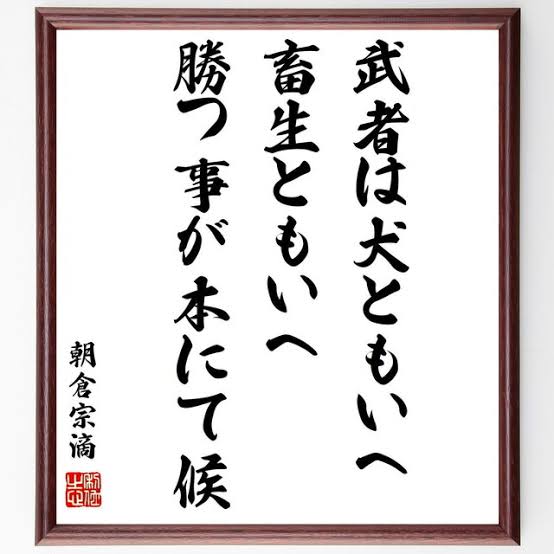 武者は犬ともいへ
畜生ともいへ
勝つ事が本にて候
朝倉宗滴